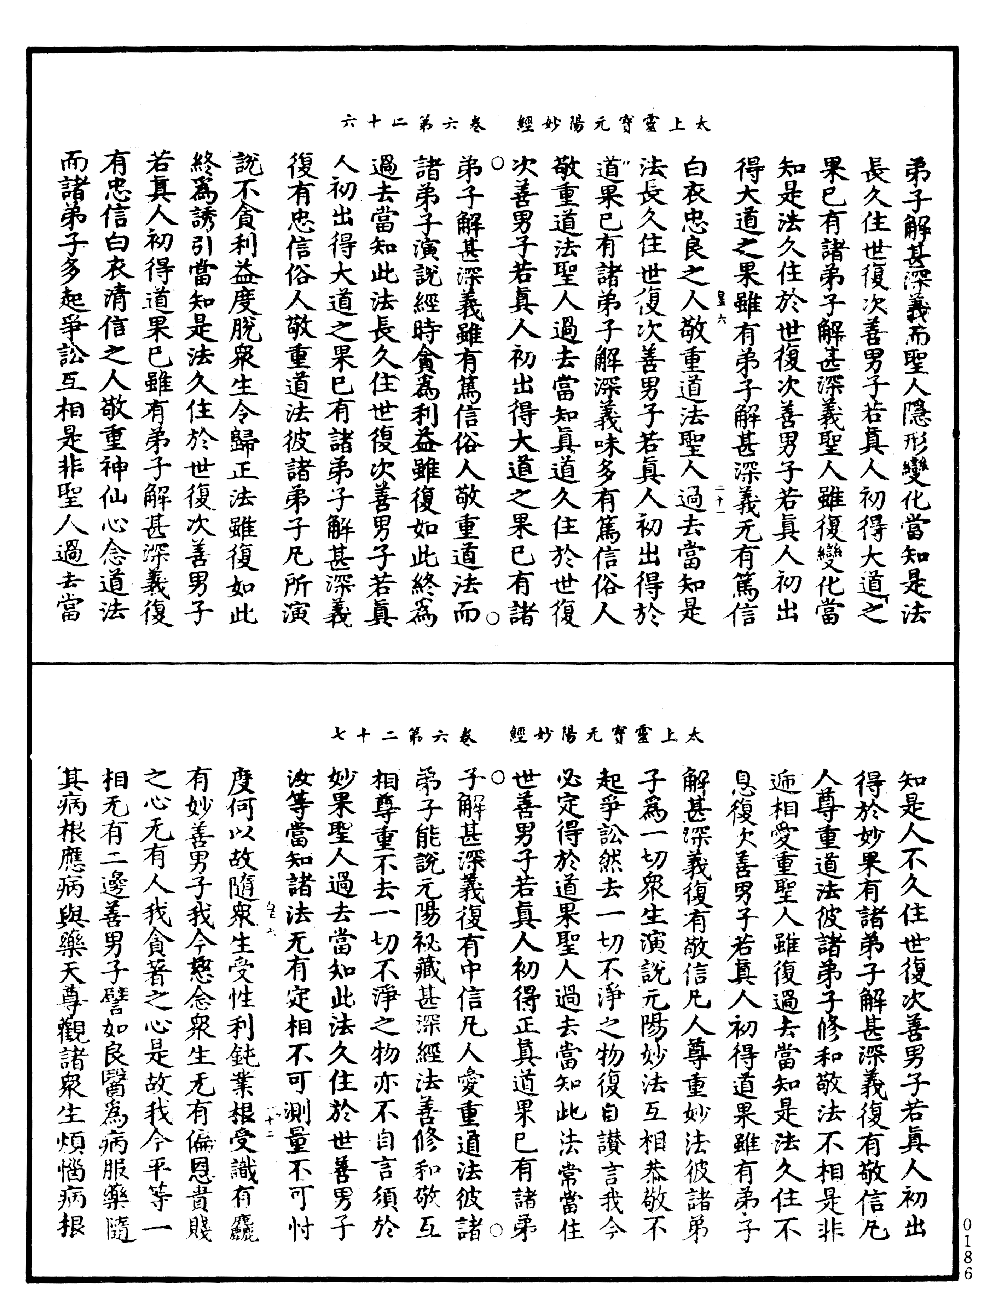 太上靈寶元陽妙經　卷六第二十六
弟子解甚深義而聖人隱形變化當知是法
長久住世復次善男子若眞人初得大道之
果已有諸弟子解甚深義聖人雖復變化當
知是法久住於世復次善男子若眞人初出
得大道之果雖有弟子解甚深義无有篤信
白衣忠良之人敬重道法聖人過去當知是
法長久住世復次善男子若眞人初出得於
道果已有諸弟子解深義味多有篤信俗人
敬重道法聖人過去當知眞道久住於世復
次善男子若眞人初出得大道之果已有諸
弟子解甚深義雖有篤信俗人敬重道法而
諸弟子演說經時貪爲利益雖復如此終爲
過去當知此法長久住世復次善男子若眞
人初出得大道之果已有諸弟子解甚深義
復有忠信俗人敬重道法彼諸弟子凡所演
說不貪利益度脫衆生令歸正法雖復如此
終爲誘引當知是法久住於世復次善男子
若眞人初得道果已雖有弟子解甚深義復
有忠信白衣清信之人敬重神仙心念道法
而諸弟子多起爭訟互相是非聖人過去當
太上靈寶元陽妙經　卷六第二十七
知是人不久住世復次善男子若眞人初出
得於妙果有諸弟子解甚深義復有敬信凡
人尊重道法彼諸弟子修和敬法不相是非
遞相愛重聖人雖復過去當知是法久住不
息復次善男子若眞人初得道果雖有弟子
解甚深義復有敬信凡人尊重妙法彼諸弟
子爲一切衆生演說元陽妙法互相恭敬不
起爭訟然去一切不淨之物復自讚言我今
必定得於道果聖人過去當知此法常當住
世善男子若眞人初得正眞道果已有諸弟
子解甚深義復有中信凡人愛重道法彼諸
弟子能說元陽祕藏甚深經法善修和敬互
相尊重不去一切不淨之物亦不自言須於
妙果聖人過去當知此法久住於世善男子
汝等當知諸法无有定相不可測量不可忖
度何以故隨衆生受性利鈍業根受識有麤
有妙善男子我今慈念衆生无有偏恩貴賤
之心无有人我貪著之心是故我今平等一
相无有二邊善男子譬如良醫爲病服藥隨
其病根應病與藥天尊觀諸衆生煩惱病根
0186